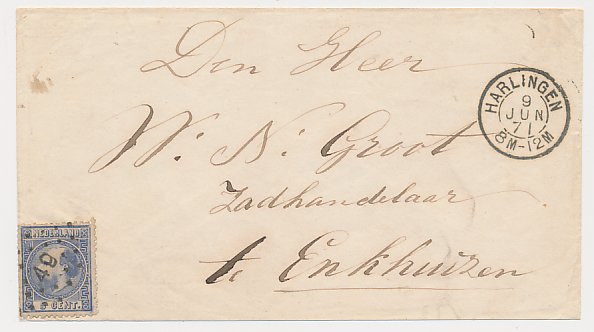 Den Heer
HARLINGEN
9
JUN
71
8M-12M
W. N. Groot
Zadhandelaar
te Enkhuizen
NEDERLAND
49
5 CENT.